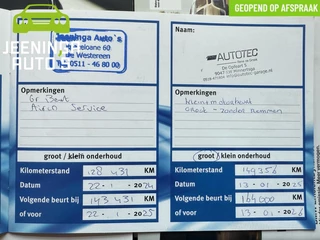 JEENINGA
AUTO'S
GEOPEND OP AFSPRAAK
Jeeninga Auto's
De Westereen
0511 - 46 80 00
Opmerkingen
Gr Beurt
Airco Service
groot / klein onderhoud
Kilometerstand 128 431 KM
Datum 22 - 1 - 2024
Volgende beurt bij 143 431 KM
of voor 22 - 1 - 2025
AUTOTEC
Opmerkingen
groot / klein onderhoud
Kilometerstand 149356 KM
Datum 13 - 01 - 2025
Volgende beurt bij 164000 KM
of voor 13 - 01 - 2026